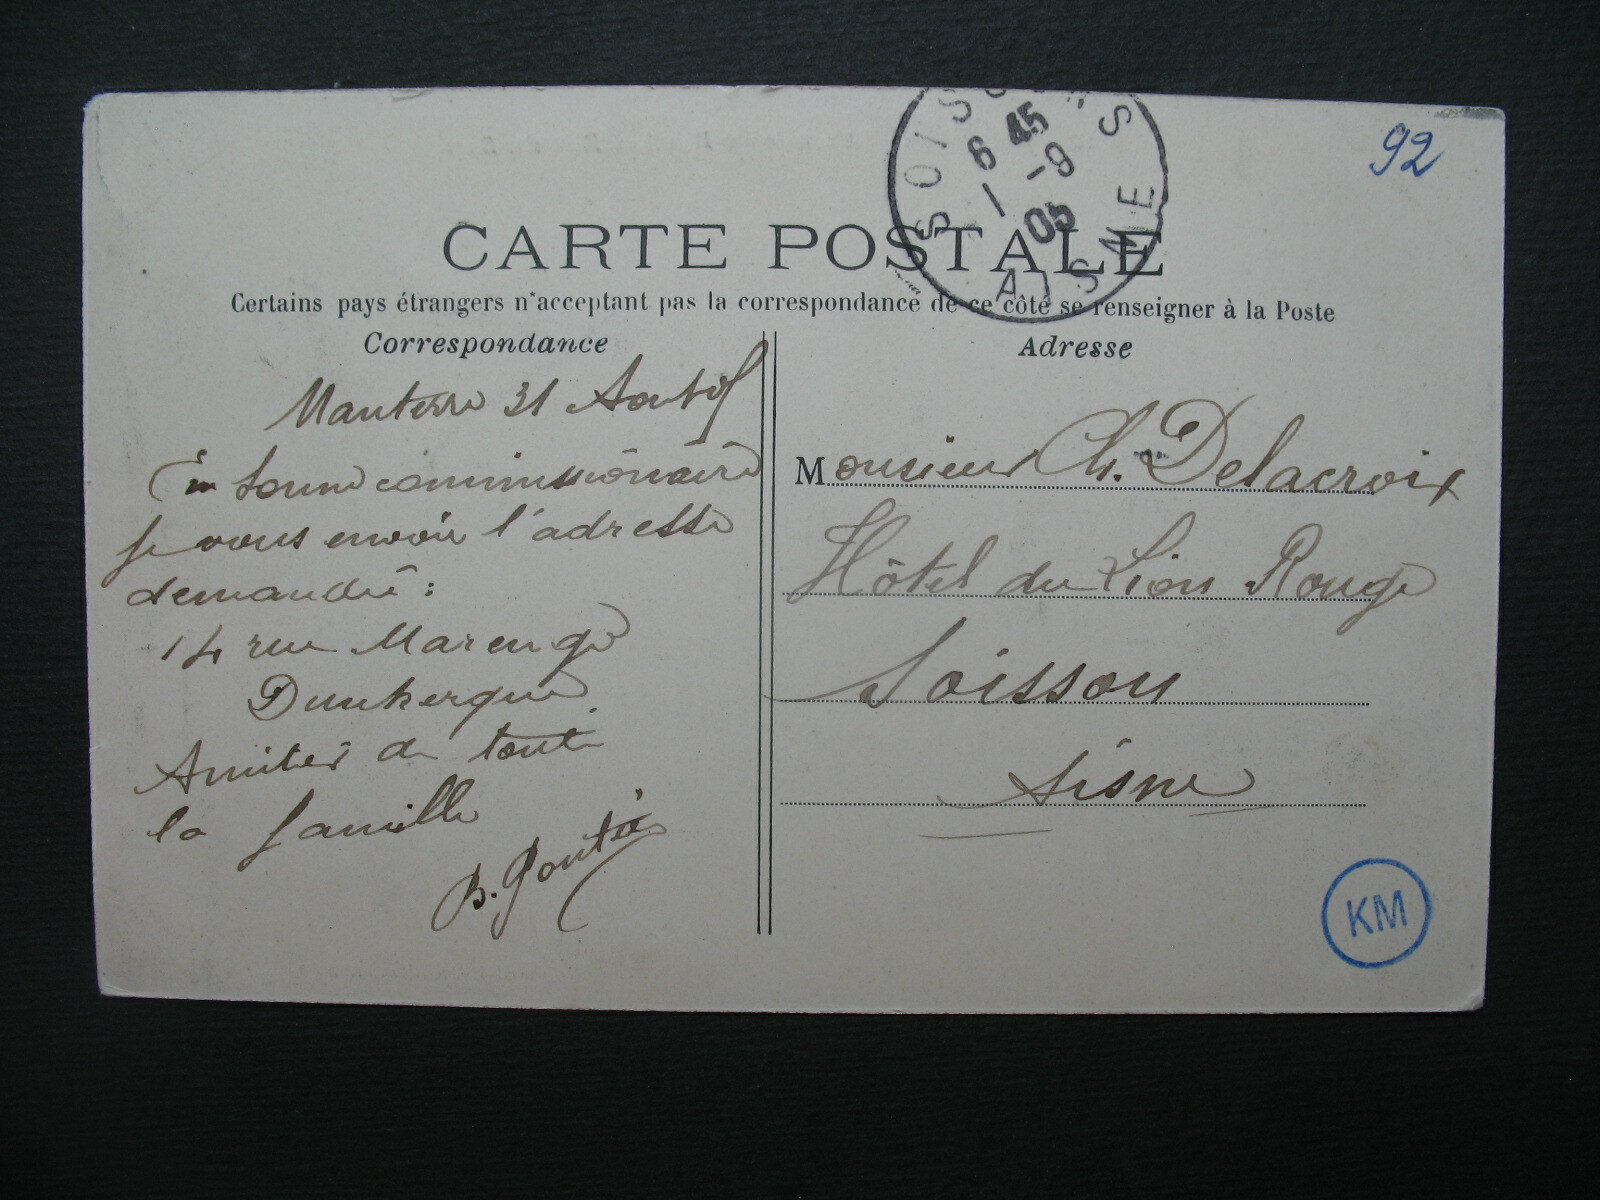 SOISSONS
6 45
1 -9
05
AISNE
92
CARTE POSTALE
Certains pays étrangers n'acceptant pas la correspondance de ce côté se renseigner à la Poste
Correspondance
Nanterre 31 Août
En bonne commissionnaire
je vous envoie l'adresse
demandée :
14 rue Marengo
Dunkerque
Amitiés de toute
la famille
B.
Adresse
Monsieur Ch. Delacroix
Hôtel du Lion Rouge
Soisson
Aisne
KM